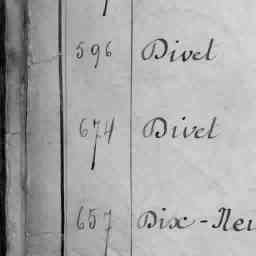 596 Divel
674 Divet
657 Dix-Neu